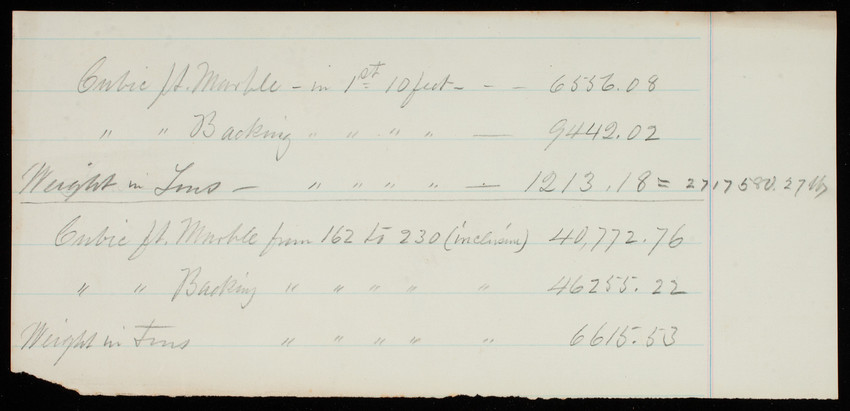 Cubic ft. Marble - in 1st 10 feet - - - 6556.08
" " Backing " " " " — 9442.02
Weight in Tons - " " " " — 1213.18 = 2717580.27 lbs
Cubic ft. Marble from 162 to 230 (inclusive) 40,772.76
" " Backing " " " " " 46255.22
Weight in Tons " " " " " 6615.53